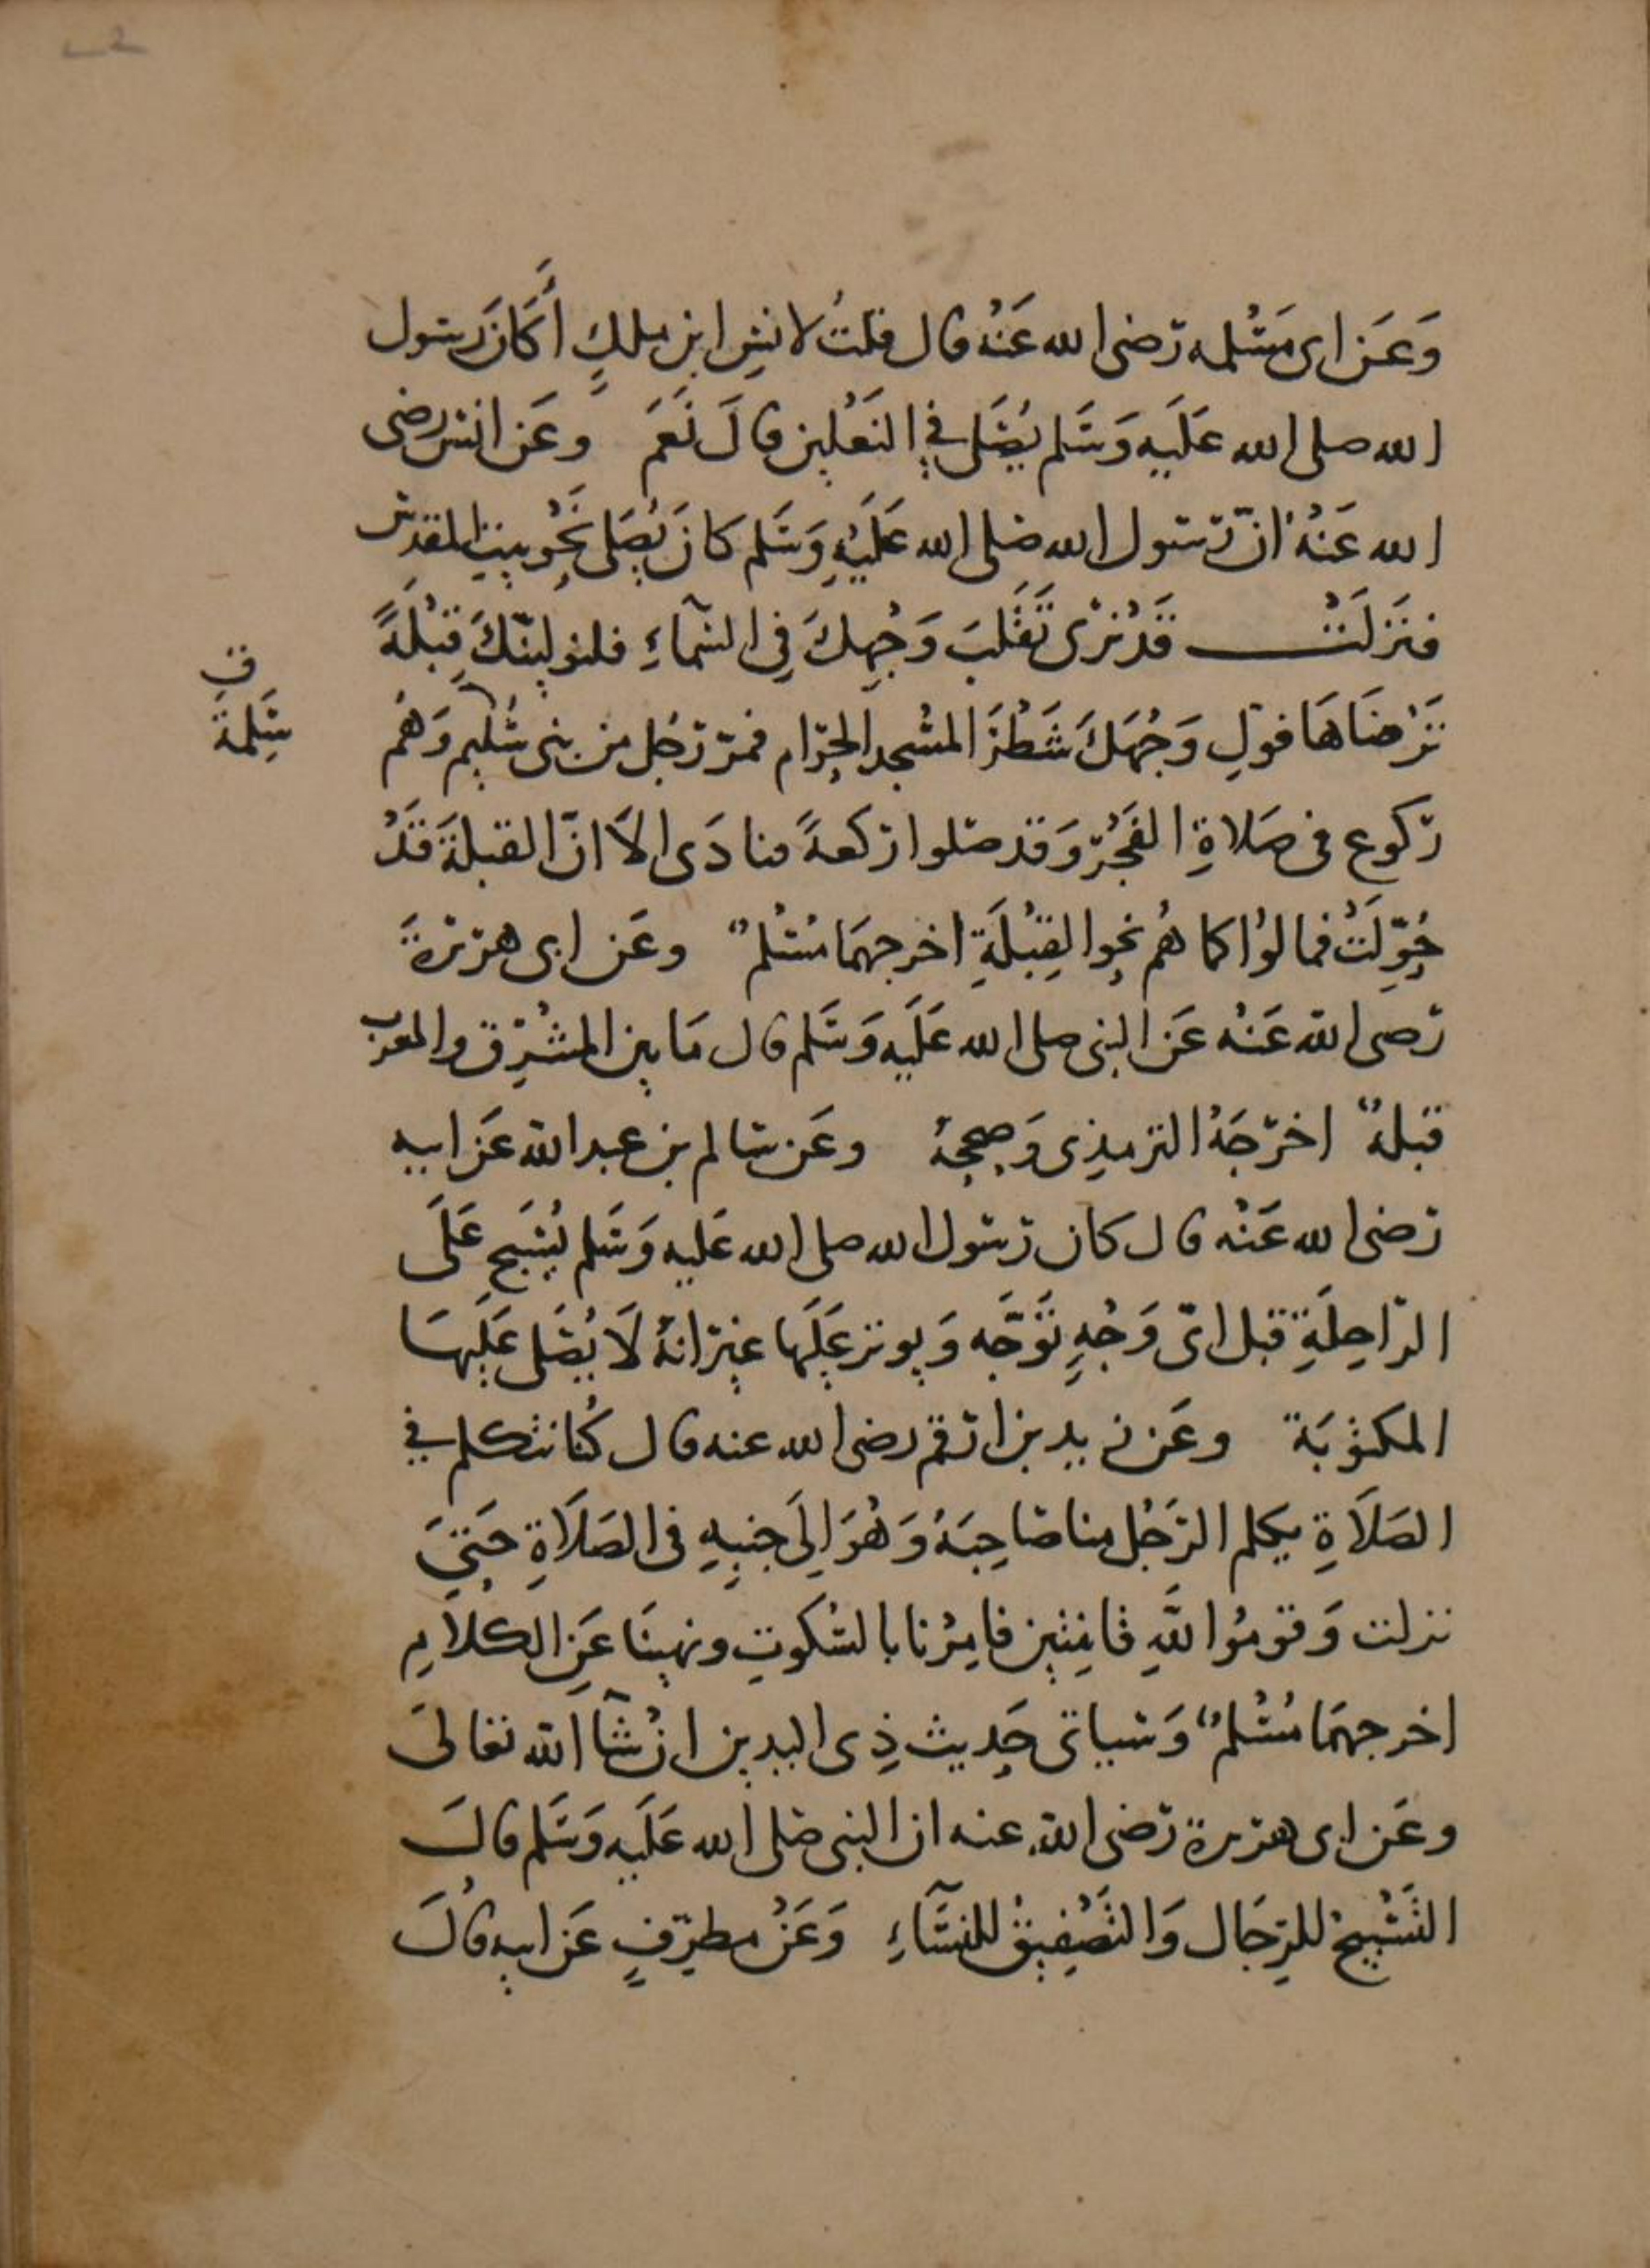 وَعَن ابى مَسْلمه رَضى الله عَنْهُ قال قلتُ لانسٍ ابن ملكٍ أَكَانَ رسُول
الله صلى الله عَلَيه وَسَلم يُصَلى فِي النَعْلين قالَ نَعَمَ وعَن انس رضى
الله عَنْهُ انّ رَسُول الله صَلى الله عَلَيْهِ وَسَلم كانَ يُصَلى نَحْو بيتِ المقدس
فنَزَلَتْ قَدْ نرَى تَقَلبَ وَجْهِكَ فِى السَّمآءِ فلنولينّكَ قِبْلَةً
تَرْضَاهَا فولِ وَجْهَكَ شَطْرَ المسْجد الحرَام فمرّ رَجُل من بنى سُليم وَهُم
ركوع فى صَلاةِ الفَجْر وَقد صَلوا ركعةً فنادَى الاَ انّ القبلةَ قَدْ
حُوِّلَتْ فمالوُا كما هُم نحوا لقِبْلَةِ اخرجهمَا مُسْلم وعَن ابى هرَيْرةَ
رَضى الله عَنْه عَن النبى صلى الله عَلَيه وَسَلم قال مَا بين المشْرِق والمغرب
قبلة اخرَجَهُ الترمذِى وَصححهُ وعَن سَالم بن عبد الله عَن ابيه
رَضى الله عَنْه قال كان رَسُول الله صلى الله عَليه وَسَلم يُسَبح عَلَى
الرّاحِلَةِ قبل اىّ وَجْهٍ تَوَّجَه وَيوتر عَليْها غيْرَ انهُ لاَ يُصَلى عَليْهَا
المكتوُبَة وعَن زيد بن ارَقم رضى الله عنه قال كُنا نتكلم فِي
الصَلاَةِ يكلم الرَجُل منا صَاحِبَهُ وَهُوَ اِلَى جنبِهِ فى الصَلاَةِ حَتىَ
نزلت وَقومُوا للهِ قانِتين فامِرْنا بالسُكوتِ ونهينَا عَنِ الكلاَمِ
اخرجهمَا مُسْلم وَسياتى حَدِيث ذِى اليدين ان شَآ الله تعالىَ
وعَن ابى هرَيرة رَضى الله عنه ان النبى صَلى الله عَلَيه وَسَلم قالَ
التَسْبيحُ للرِجَال وَالتَصْفِيقُ للنسَآءِ وَعَنْ مطرّفٍ عَن ابيه قالَ
ق
سَلِمَةَ